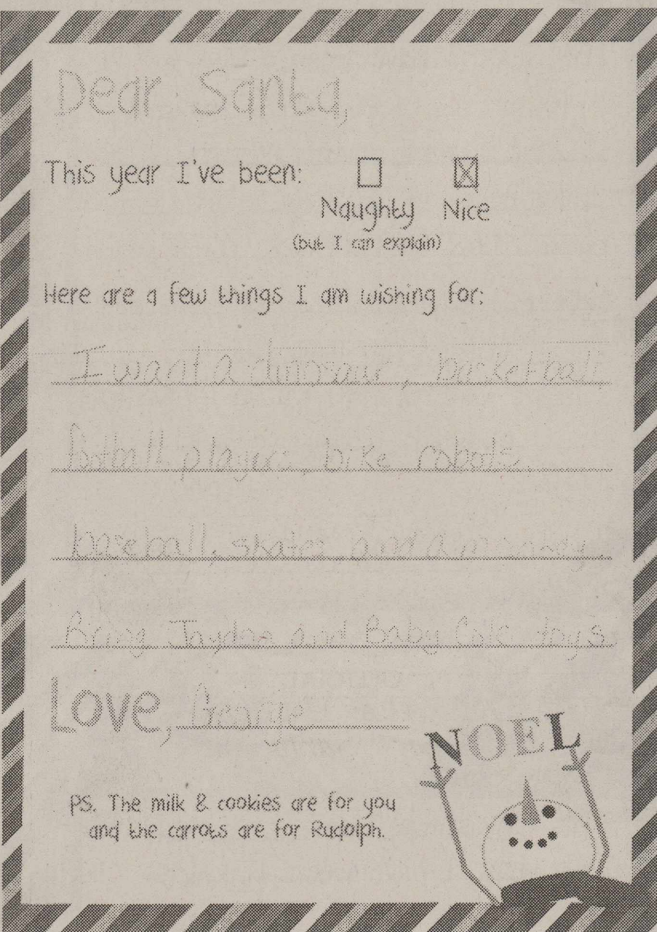 Dear Santa,
This year I've been:
Naughty Nice
(but I can explain)
Here are a few things I am wishing for:
I want a dinosaur, basketball,
football players, bike, robots,
baseball, skates and a monkey.
Bring Jaydon and Baby Cole toys.
Love, George
NOEL
PS. The milk & cookies are for you
and the carrots are for Rudolph.